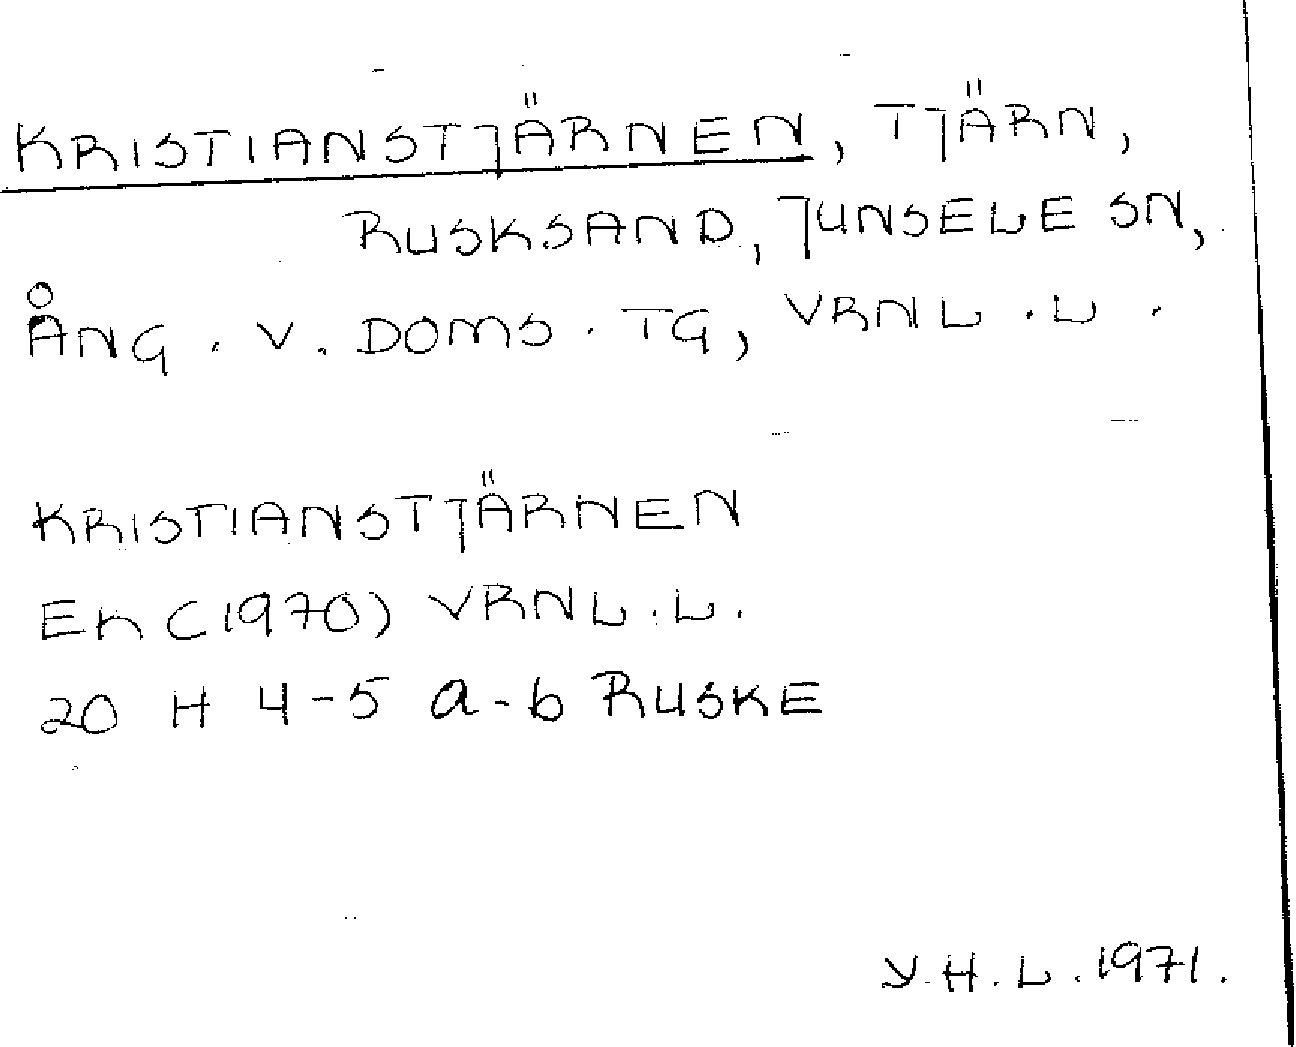 KRISTIANSTJÄRNEN, TJÄRN,
RUSKSAND, JUNSELE SN,
ÅNG. V. DOMS. TG, VRNL.L.
KRISTIANSTJÄRNEN
EK (1970) VRNL.L.
20 H 4-5 a-b RUSKE
Y.H.L. 1971.